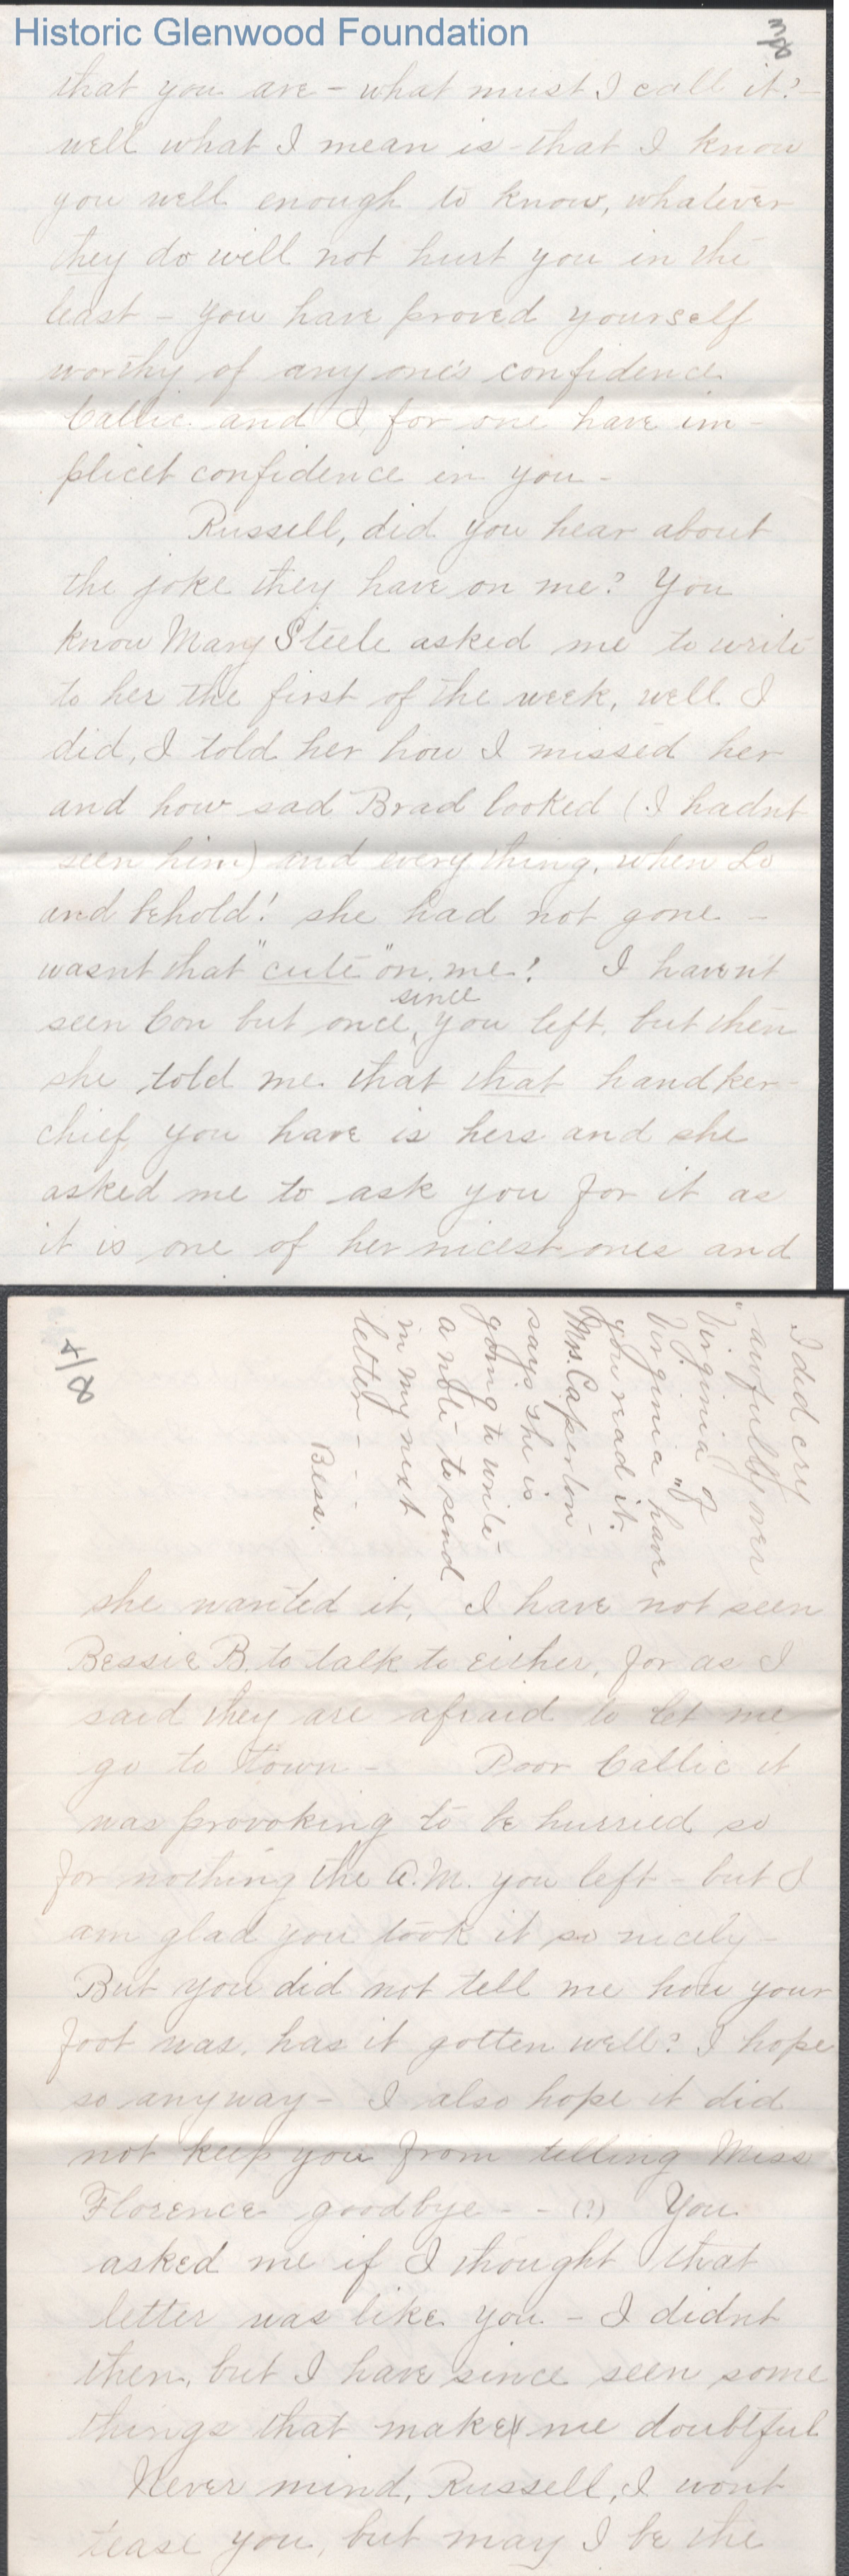 Historic Glenwood Foundation
3/8
that you are - what must I call it? -
well what I mean is - that I know
you well enough to know, whatever
they do will not hurt you in the
least - you have proved yourself
worthy of any one's confidence
Callie and I, for one have im-
plicit confidence in you -
Russell, did you hear about
the joke they have on me? You
know Mary Steele asked me to write
to her the first of the week, well I
did, I told her how I missed her
and how sad Brad looked (I hadnt
seen him) and every thing, when Lo
and behold! she had not gone -
wasnt that "cute" on me! I havent
since
seen Con but once, you left, but then
she told me that that handker-
chief you have is hers and she
asked me to ask you for it as
it is one of her nicest ones and
4/8
I did cry
awfully over
"Virginia of
Virginia" have
you read it.
Mrs. Caperton
says she is
going to write
a note to send
in my next
letter - - -
Bess.
she wanted it, I have not seen
Bessie B. to talk to either, for as I
said they are afraid to let me
go to town - Poor Callie it
was provoking to be hurried so
for nothing the A.M. you left - but I
am glad you took it so nicely -
But you did not tell me how your
foot was, has it gotten well? I hope
so anyway - I also hope it did
not keep you from telling Miss
Florence goodbye - - (?) You
asked me if I thought that
letter was like you - I didnt
then, but I have since seen some
things that make me doubtful
Never mind, Russell, I wont
tease you, but may I be the